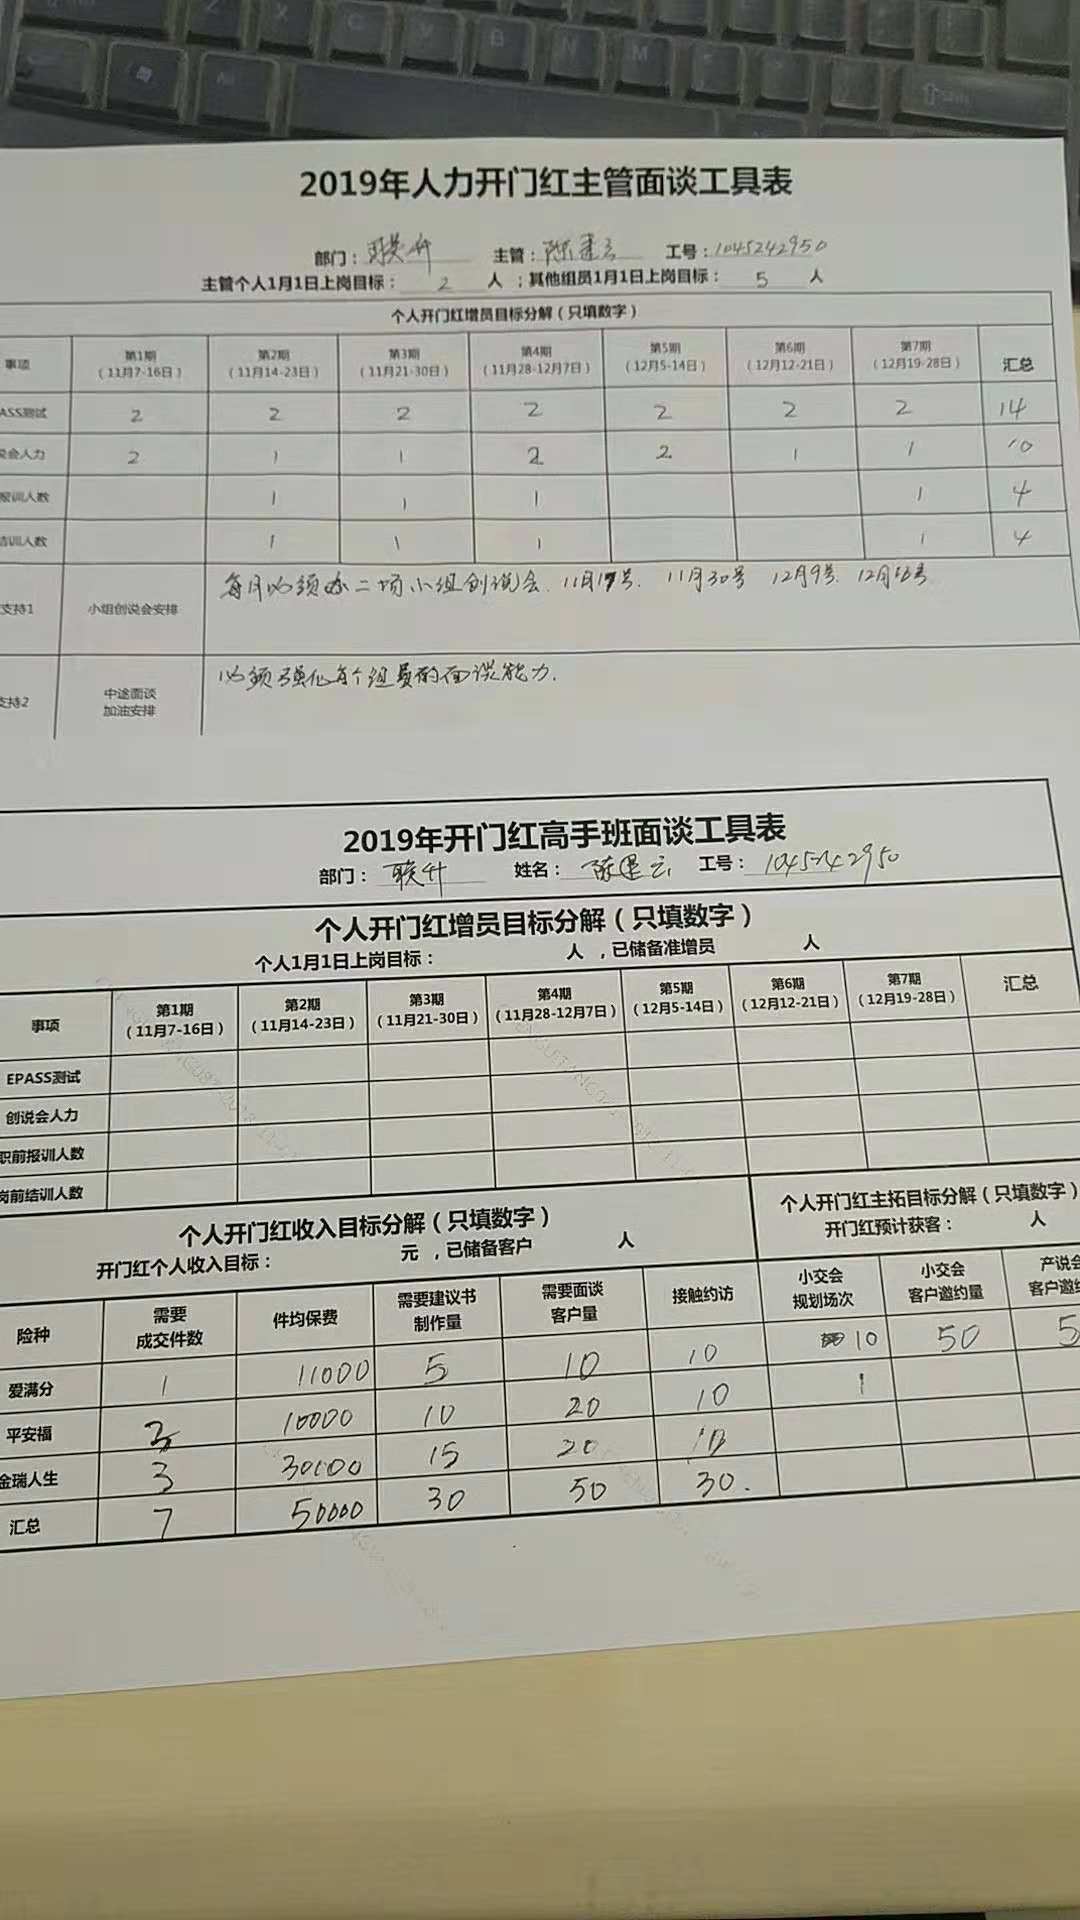 2019年人力开门红主管面谈工具表
部门：联升 主管：陈建云 工号：1045242950
主管个人1月1日上岗目标： 2 人 ；其他组员1月1日上岗目标： 5 人
个人开门红增员目标分解（只填数字）
事项 第1期（11月7-16日） 第2期（11月14-23日） 第3期（11月21-30日） 第4期（11月28-12月7日） 第5期（12月5-14日） 第6期（12月12-21日） 第7期（12月19-28日） 汇总
ASS测试 2 2 2 2 2 2 2 14
说会人力 2 1 1 2 2 1 1 10
报训人数 1 1 1 1 4
结训人数 1 1 1 1 4
支持1 小组创说会安排 每月必须办二场小组创说会. 11月 号. 11月30号 12月9号. 12月 号
支持2 中途面谈加油安排 必须强化每个组员的面谈能力.
2019年开门红高手班面谈工具表
部门：联升 姓名：陈建云 工号：1045242950
个人开门红增员目标分解（只填数字）
个人1月1日上岗目标： 人 ，已储备准增员 人
事项 第1期（11月7-16日） 第2期（11月14-23日） 第3期（11月21-30日） 第4期（11月28-12月7日） 第5期（12月5-14日） 第6期（12月12-21日） 第7期（12月19-28日） 汇总
EPASS测试
创说会人力
职前报训人数
岗前结训人数
个人开门红收入目标分解（只填数字） 个人开门红主拓目标分解（只填数字）
开门红个人收入目标： 元 ，已储备客户 人 开门红预计获客： 人
险种 需要成交件数 件均保费 需要建议书制作量 需要面谈客户量 接触约访 小交会规划场次 小交会客户邀约量 产说会客户邀约
爱满分 1 11000 5 10 10 10 50 5
平安福 3 10000 10 20 10 1
金瑞人生 3 30000 15 20 10
汇总 7 50000 30 50 30.